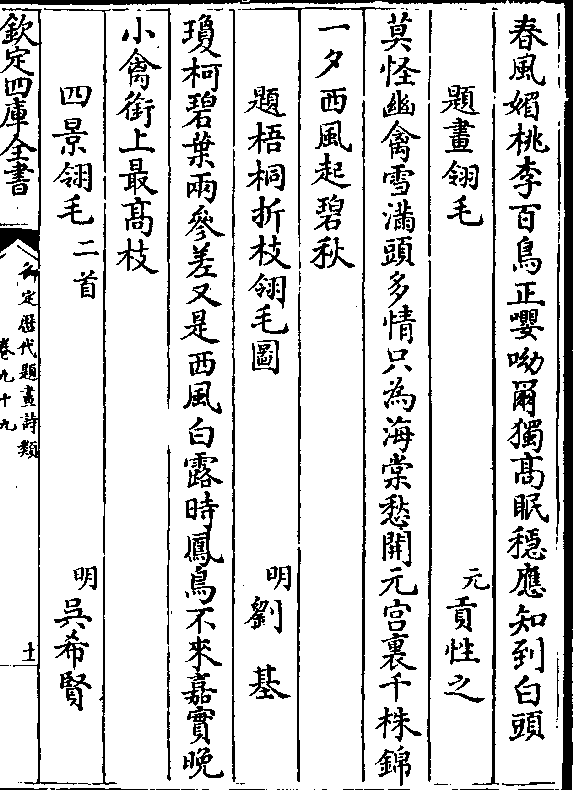 春風媚桃李百鳥正嚶呦爾獨髙眠穏應知到白頭
題畫翎毛 元 貢性之
莫怪幽禽雪滿頭多情只為海棠愁開元宫裏千株錦
一夕西風起碧秋
題梧桐折枝翎毛圖 明 劉基
瓊柯碧葉兩參差又是西風白露時鳳鳥不來嘉實晩
小禽銜上最髙枝
四景翎毛二首 明 吳希賢
欽定四庫全書
御定歴代題畫詩類
卷九十九
十一